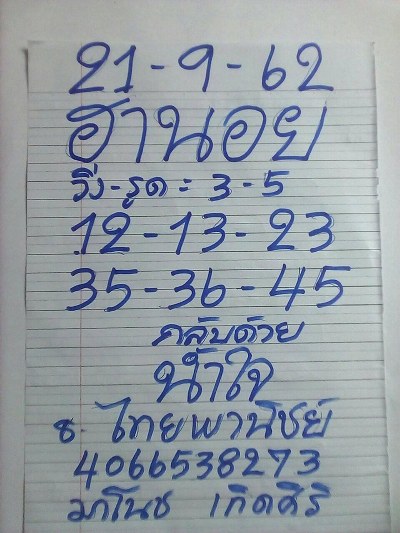 21-9-62
ฮานอย
วิ่ง-รูด = 3-5
12-13-23
35-36-45
กลับด้วย
น้ำใจ
ธ. ไทยพานิชย์
4066538273
มาโนช เกิดศิริ